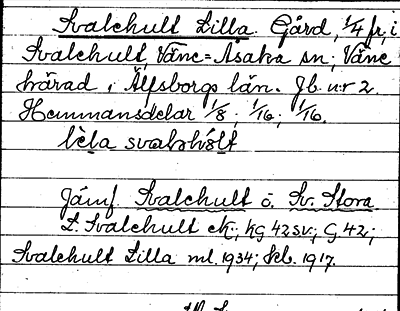 Svalehult Lilla. Gård, 1/4 fr, i
Svalehult, Väne=Åsaka sn, Väne
härad i Älfsborgs län. Jb. n:r 2.
Hemmansdelar 1/8, 1/16, 1/16.
Jämf. Svalehult o. Sv. Stora.
L. Svalehult ek.; KG 42 SV.; G. 42;
Svalehult Lilla ml. 1934; Skb. 1917.